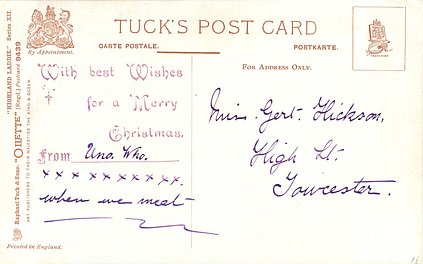 TUCK'S POST CARD
CARTE POSTALE.
POSTKARTE.
By Appointment.
FOR ADDRESS ONLY.
With best Wishes
for a Merry
Christmas.
From Uno. Who.
x x x x x x x x x x.
when we meet
Miss. Gert. Hickson,
High St.
Towcester.
"HIGHLAND LADDIE." Series XII.
"OILETTE" [Regd.] Postcard 9439
Raphael Tuck & Sons'
ART PUBLISHERS TO THEIR MAJESTIES THE KING & QUEEN.
Printed in England.